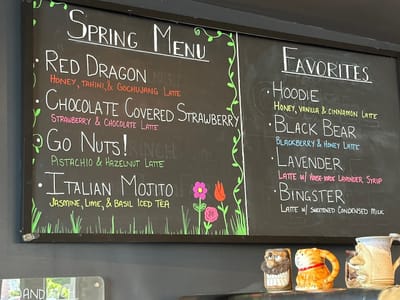 Spring Menu
Red Dragon
Honey, Tahini, & Gochujang Latte
Chocolate Covered Strawberry
Strawberry & Chocolate Latte
Go Nuts!
Pistachio & Hazelnut Latte
Italian Mojito
Jasmine, Lime, & Basil Iced Tea
Favorites
Hoodie
Honey, Vanilla & Cinnamon Latte
Black Bear
Blackberry & Honey Latte
Lavender
Latte w/ House-Made Lavender Syrup
Bingster
Latte w/ Sweetened Condensed Milk